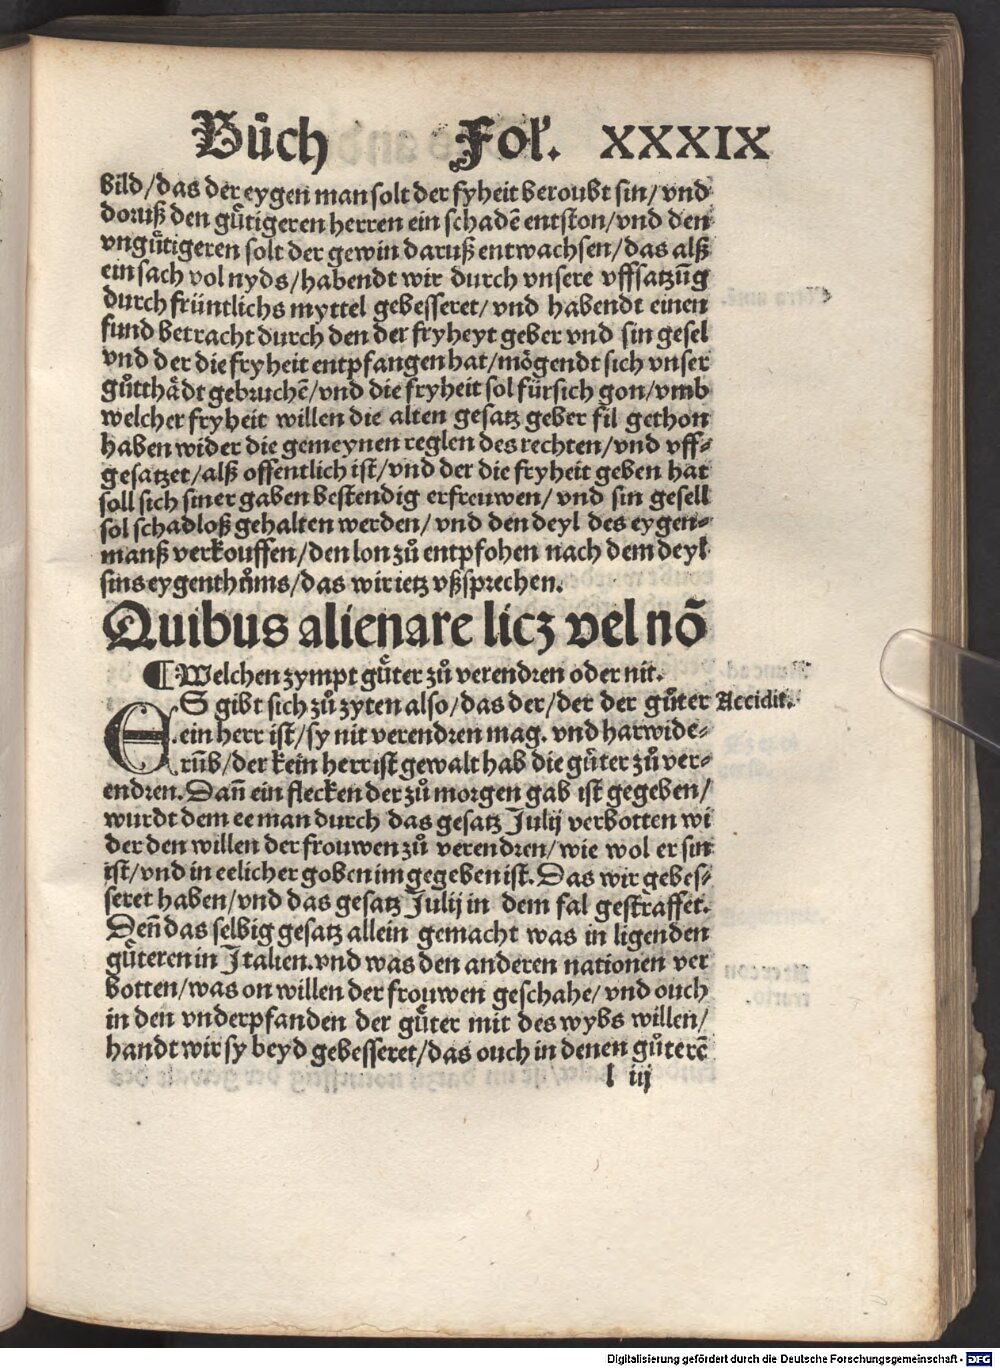 Bůch Fol'. XXXIX
bild/das der eygen man solt der fyheit beroubt sin/vnd
doruß den gůtigeren herren ein schadē entston/vnd den
vngůtigeren solt der gewin daruß entwachsen/das alß
ein sach vol nyds/habendt wir durch vnsere vffsatzūg
durch früntlichs myttel gebesseret/vnd habendt einen
fund betracht durch den der fryheyt geber vnd sin gesel
vnd der die fryheit entpfangen hat/mögendt sich vnser
gůtthädt gebruchē/vnd die fryheit sol für sich gon/vmb
welcher fryheit willen die alten gesatz geber fil gethon
haben wider die gemeynen reglen des rechten/vnd vff⸗
gesatzet/alß offentlich ist/vnd der die fryheit geben hat
soll sich siner gaben bestendig erfreuwen/vnd sin gesell
sol schadloß gehalten werden/vnd den deyl des eygen⸗
manß verkouffen/den lon zů entpfohen nach dem deyl
sins eygenthůms/das wir ietz vßsprechen.
Quibus alienare licz vel nō
¶Welchen zympt gůter zů verendren oder nit.
ES gibt sich zů zyten also/das der/der der gůter Accidit.
ein herr ist/sy nit verendren mag. vnd harwide⸗
rūb/der kein herr ist gewalt hab die gůter zů ver⸗
endren. Dañ ein flecken der zů morgen gab ist gegeben/
wurdt dem ee man durch das gesatz Julij verbotten wi
der den willen der frouwen zů verendren/wie wol er sin
ist/vnd in eelicher goben im gegeben ist. Das wir gebes⸗
seret haben/vnd das gesatz Julij in dem fal gestraffet.
Deñ das selbig gesatz allein gemacht was in ligenden
gůteren in Italien. vnd was den anderen nationen ver
botten/was on willen der frouwen geschahe/vnd ouch
in den vnderpfanden der gůter mit des wybs willen/
handt wir sy beyd gebesseret/das ouch in denen gůterē
l iij
Digitalisierung gefördert durch die Deutsche Forschungsgemeinschaft - DFG